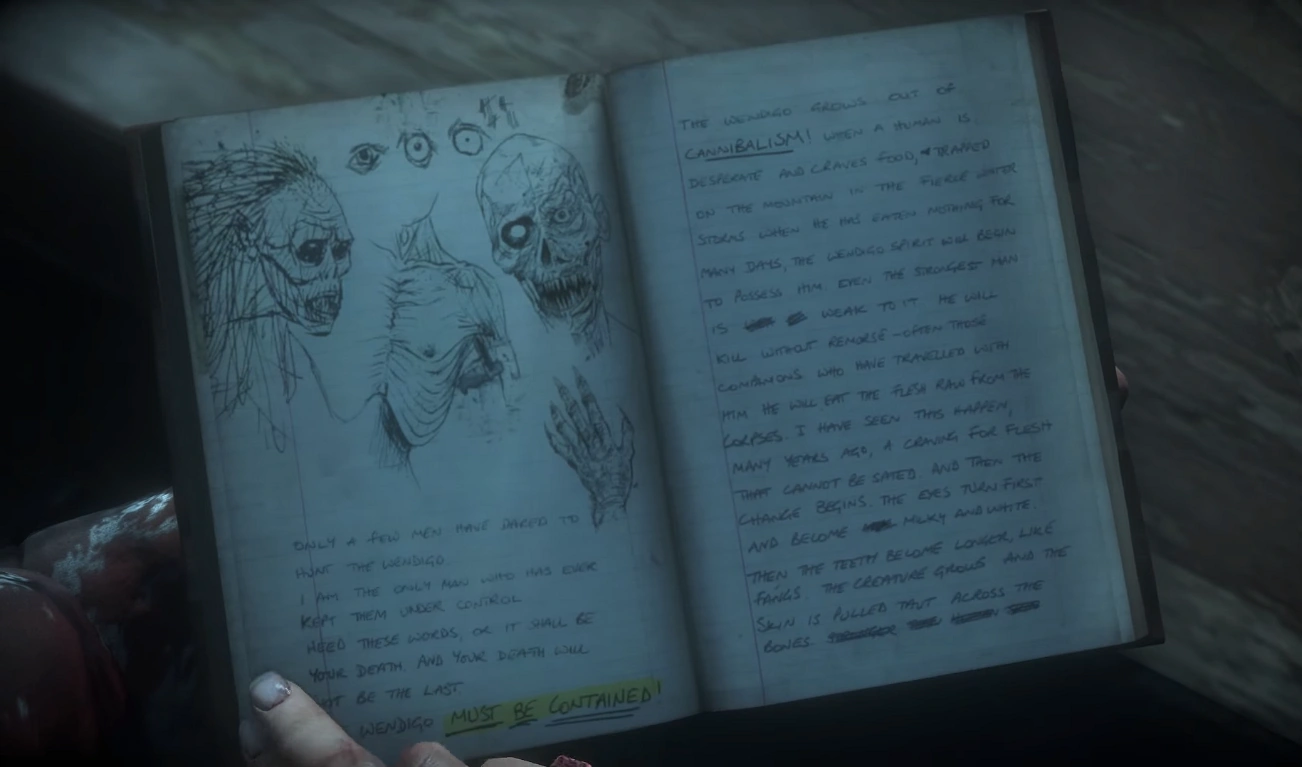 ONLY A FEW MEN HAVE DARED TO
HUNT THE WENDIGO.
I AM THE ONLY MAN WHO HAS EVER
KEPT THEM UNDER CONTROL
HEED THESE WORDS, OR IT SHALL BE
YOUR DEATH. AND YOUR DEATH WILL
NOT BE THE LAST.
WENDIGO MUST BE CONTAINED!
THE WENDIGO GROWS OUT OF
CANNIBALISM! WHEN A HUMAN IS
DESPERATE AND CRAVES FOOD, TRAPPED
ON THE MOUNTAIN IN THE FIERCE WINTER
STORMS WHEN HE HAS EATEN NOTHING FOR
MANY DAYS, THE WENDIGO SPIRIT WILL BEGIN
TO POSSESS HIM. EVEN THE STRONGEST MAN
IS WEAK TO IT. HE WILL
KILL WITHOUT REMORSE - OFTEN THOSE
COMPANIONS WHO HAVE TRAVELLED WITH
HIM. HE WILL EAT THE FLESH RAW FROM THE
CORPSES. I HAVE SEEN THIS HAPPEN,
MANY YEARS AGO, A CRAVING FOR FLESH
THAT CANNOT BE SATED. AND THEN THE
CHANGE BEGINS. THE EYES TURN FIRST
AND BECOME MILKY AND WHITE.
THEN THE TEETH BECOME LONGER, LIKE
FANGS. THE CREATURE GROWS AND THE
SKIN IS PULLED TAUT ACROSS THE
BONES.